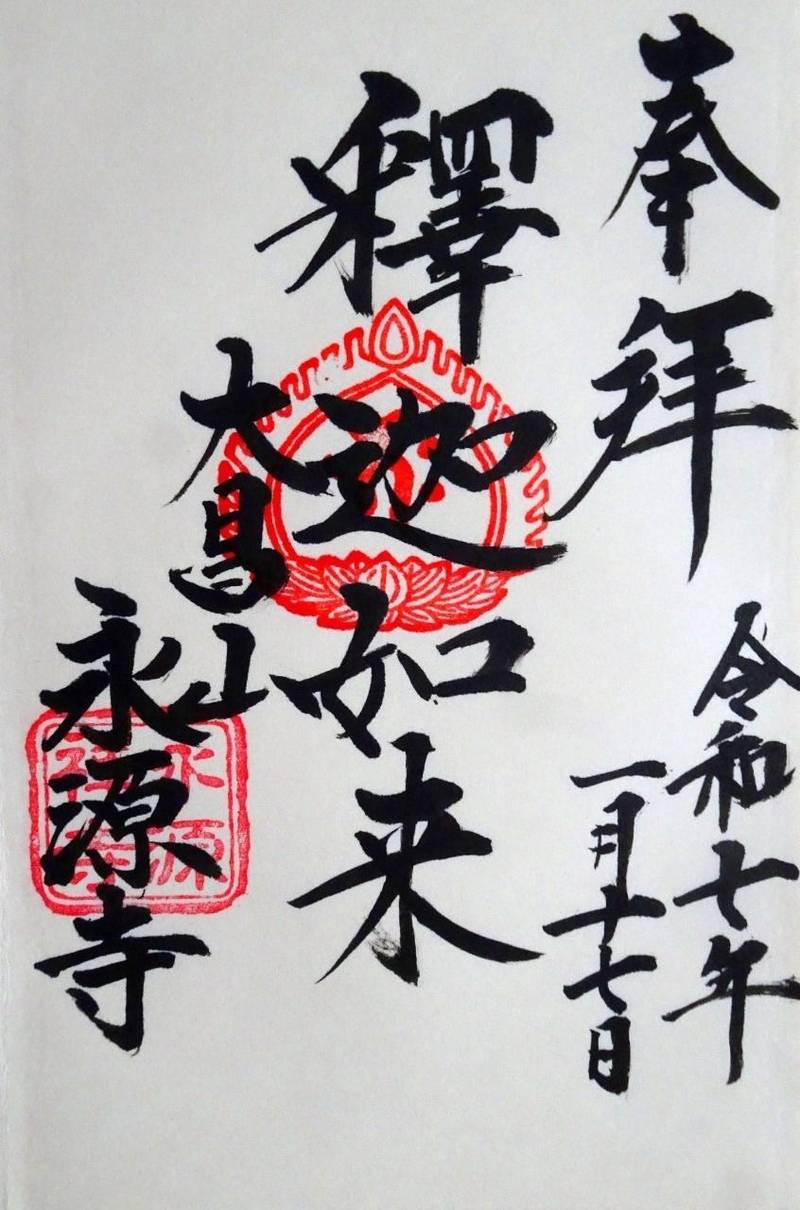 奉拝
令和七年
一月十七日
釋迦如来
大昌山
永源寺
永源